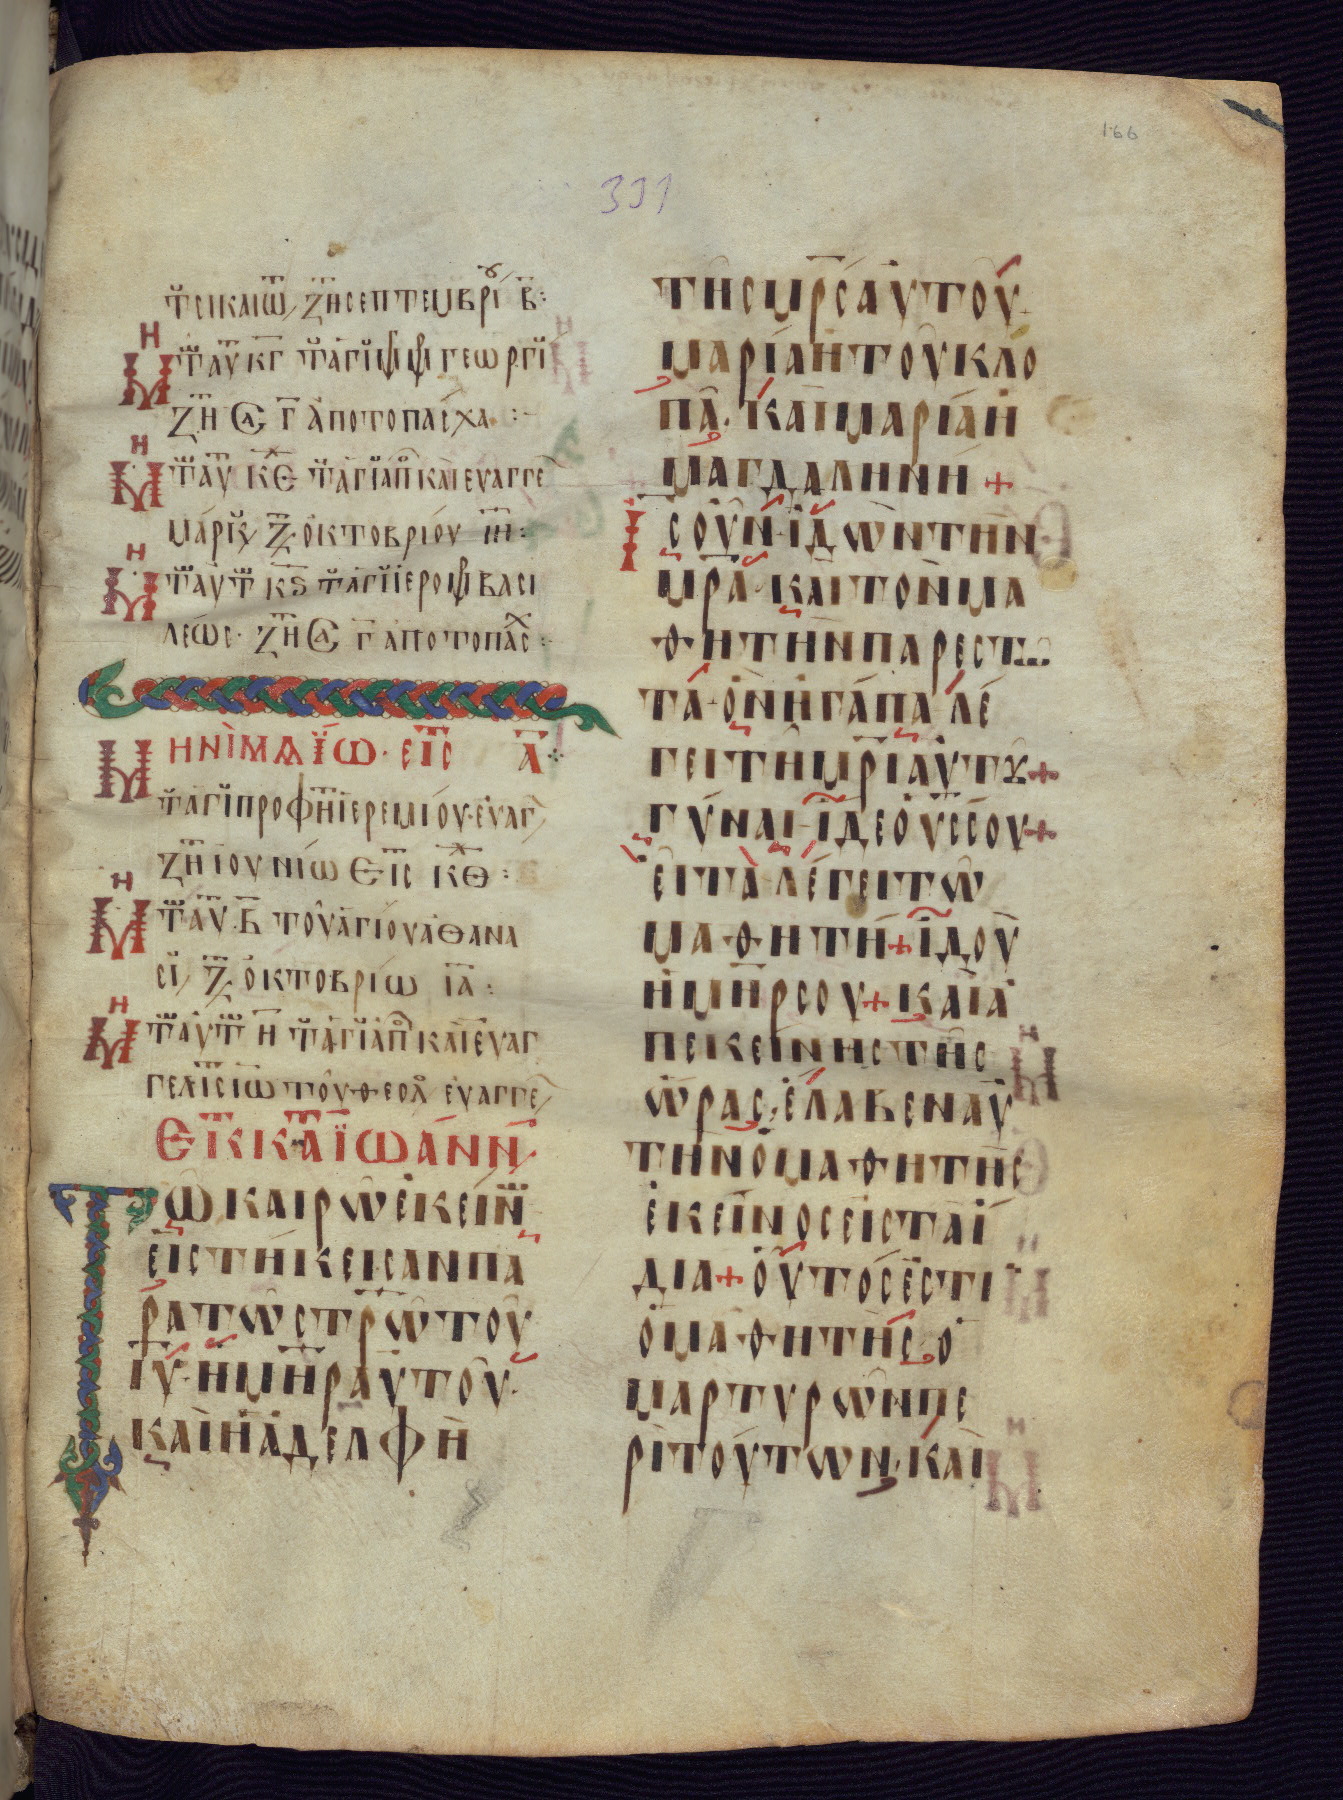 166
331
τ σικαιω ζη σεπτεμβρι β:
Μη τ αυ κγ τ αγι μ γεωργι
ζη Σα γ απο το πασχα :-
Μη τ αυ κε τ αγι απ και ευαγγε
μαρκ ζ οκτοβριου ιη:
Μη τ αυτ κϛ τ αγι ιερομ βασι
λεως · ζη Σα γ απο το πασχ :
Μηνὶ μαΐω · εις α
τ αγι προφη ιερεμιου · ευαγ
ζη ιουνιω εις κθ:
Μη τ αυ · β του αγιου αθανα
σι ζ οκτοβριω ια:
Μη τ αυτ η τ αγι απ και ευαγ
γελις ιω του θεολ ευαγγε
Εκ κατ ϊωάνν
Τω καιρω εκειν
ειστηκεισαν πα
ρα τω στρω του
ιυ · η μηρ αυτου ·
και η αδελφη
της μρς αυτου ·
μαρια η του κλο
πα · και μαρια η
μαγδαληνη +
Ις ουν ιδων την
μρα · και τον μα
θητην παρεστω
τα · ον ηγαπα λε
γει τη μρι αυτου +
γυναι ιδε ο υς σου +
ειτα λεγει τω
μαθητη + ιδου
η μηρ σου + και α
π εκεινης της
ωρας, ελαβεν αυ
την ο μαθητης
εκεινος εις τα ι
δια + ουτος εστι
ο μαθητης ο
μαρτυρων πε
ρι τουτων · και